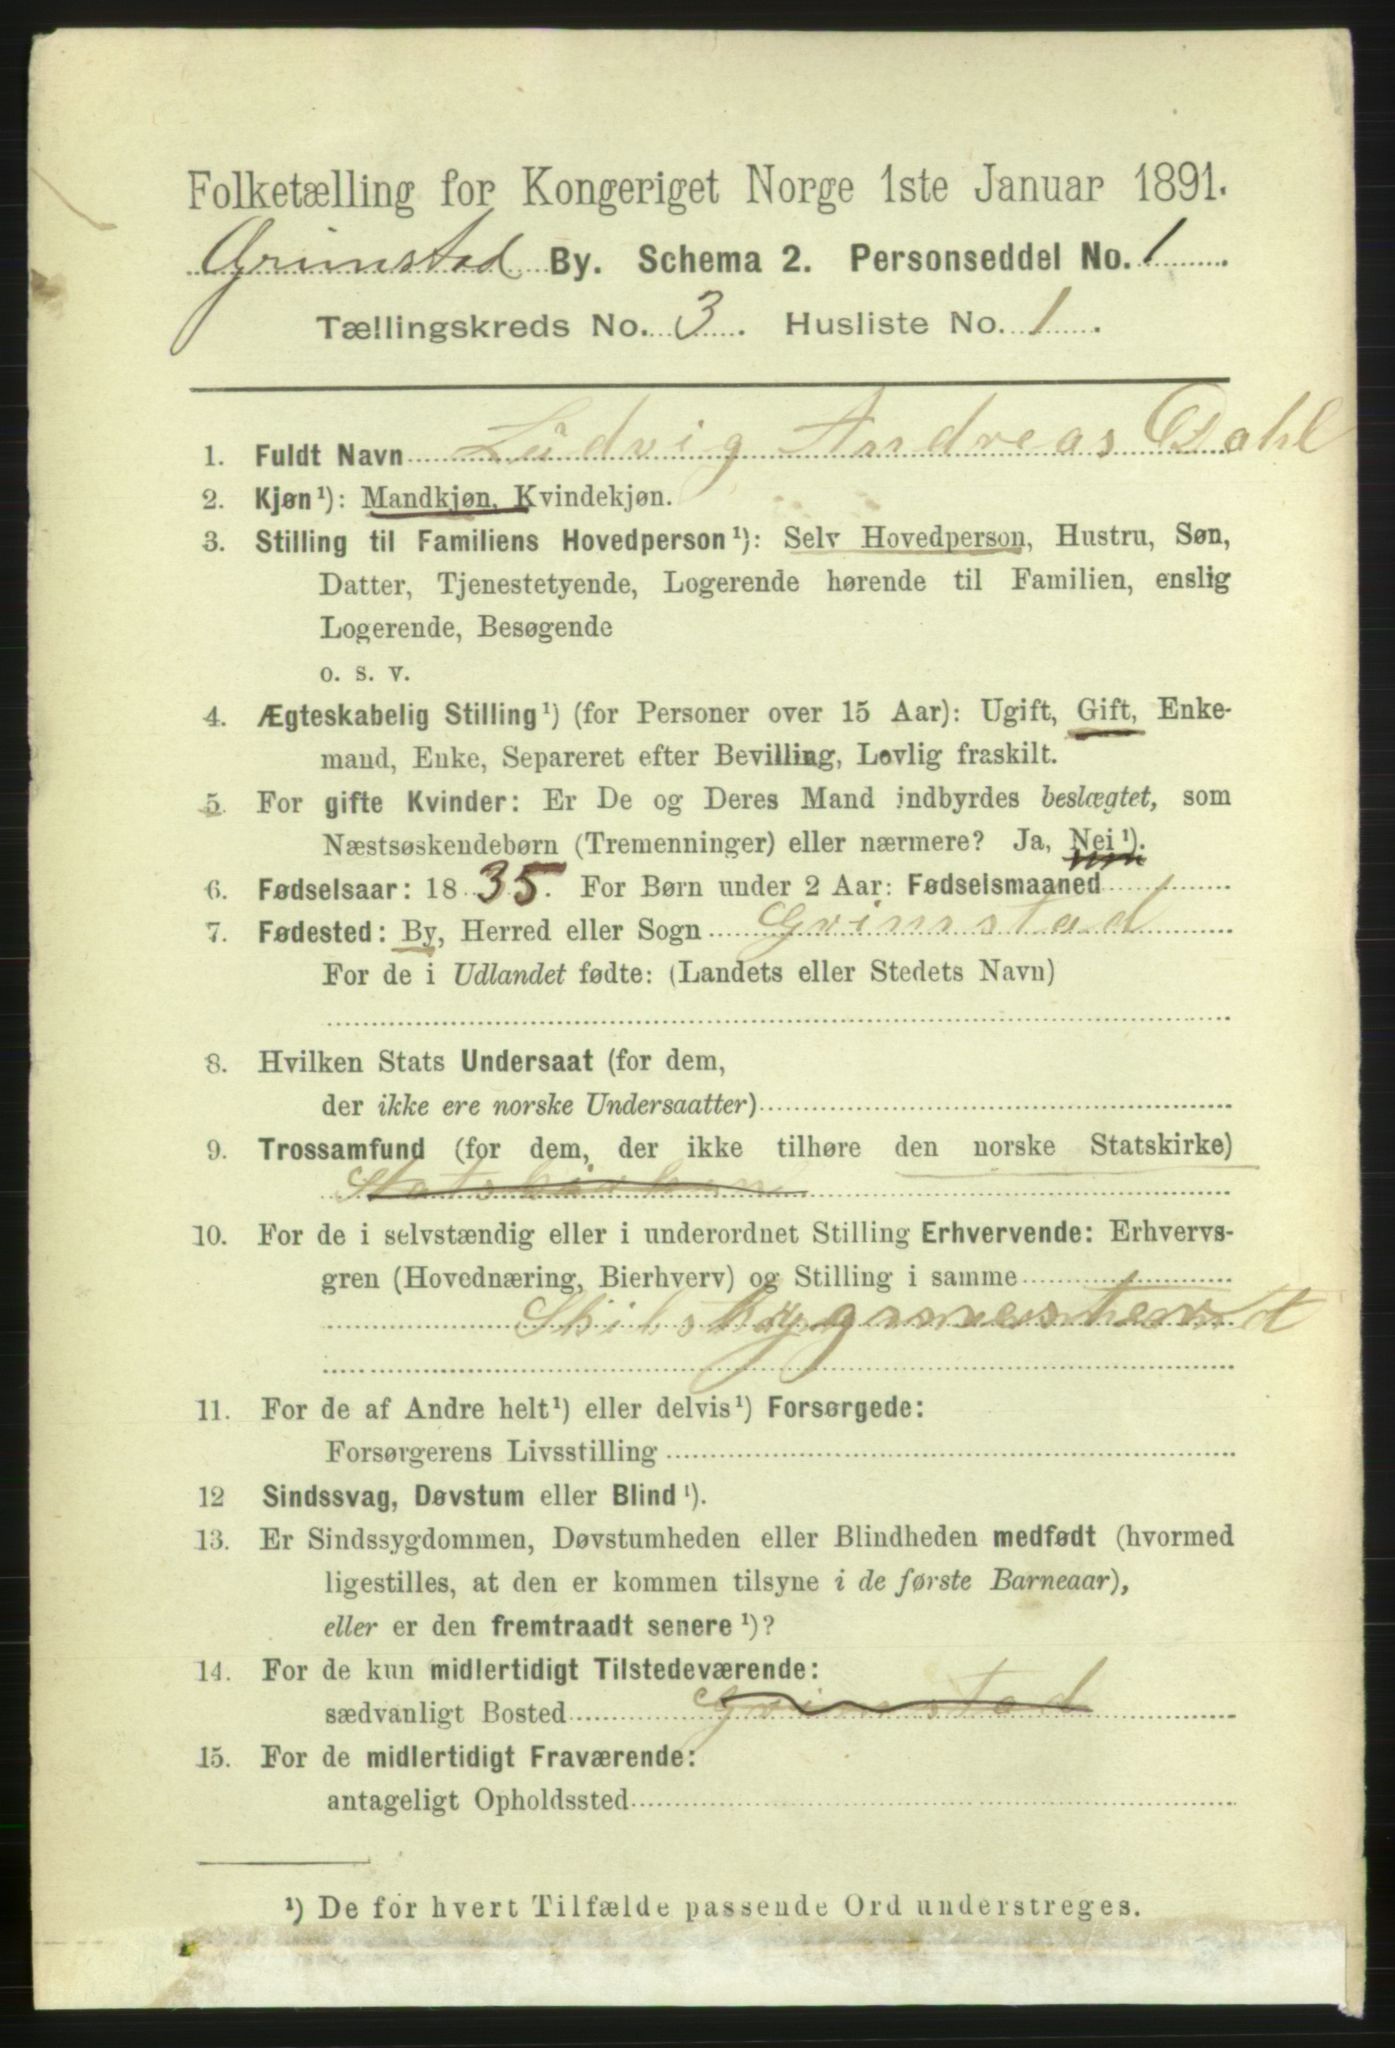 Folketælling for Kongeriget Norge 1ste Januar 1891.
Grimstad By. Schema 2. Personseddel No. 1
Tællingskreds No. 3. Husliste No. 1.
1. Fuldt Navn Ludvig Andreas Dahl
2. Kjøn¹): Mandkjøn, Kvindekjøn.
3. Stilling til Familiens Hovedperson¹): Selv Hovedperson, Hustru, Søn,
Datter, Tjenestetyende, Logerende hørende til Familien, enslig
Logerende, Besøgende
o. s. v.
4. Ægteskabelig Stilling¹) (for Personer over 15 Aar): Ugift, Gift, Enke-
mand, Enke, Separeret efter Bevilling, Lovlig fraskilt.
5. For gifte Kvinder: Er De og Deres Mand indbyrdes beslægtet, som
Næstsøskendebørn (Tremenninger) eller nærmere? Ja, Nei¹).
6. Fødselsaar: 1835. For Børn under 2 Aar: Fødselsmaaned
7. Fødested: By, Herred eller Sogn Grimstad
For de i Udlandet fødte: (Landets eller Stedets Navn)
8. Hvilken Stats Undersaat (for dem,
der ikke ere norske Undersaatter)
9. Trossamfund (for dem, der ikke tilhøre den norske Statskirke)
Statskirken
10. For de i selvstændig eller i underordnet Stilling Erhvervende: Erhvervs-
gren (Hovednæring, Bierhverv) og Stilling i samme
11. For de af Andre helt¹) eller delvis¹) Forsørgede:
Forsørgerens Livsstilling
12 Sindssvag, Døvstum eller Blind¹).
13. Er Sindssygdommen, Døvstumheden eller Blindheden medfødt (hvormed
ligestilles, at den er kommen tilsyne i de første Barneaar),
eller er den fremtraadt senere¹)?
14. For de kun midlertidigt Tilstedeværende:
sædvanligt Bosted Grimstad
15. For de midlertidigt Fraværende:
antageligt Opholdssted
¹) De for hvert Tilfælde passende Ord understreges.